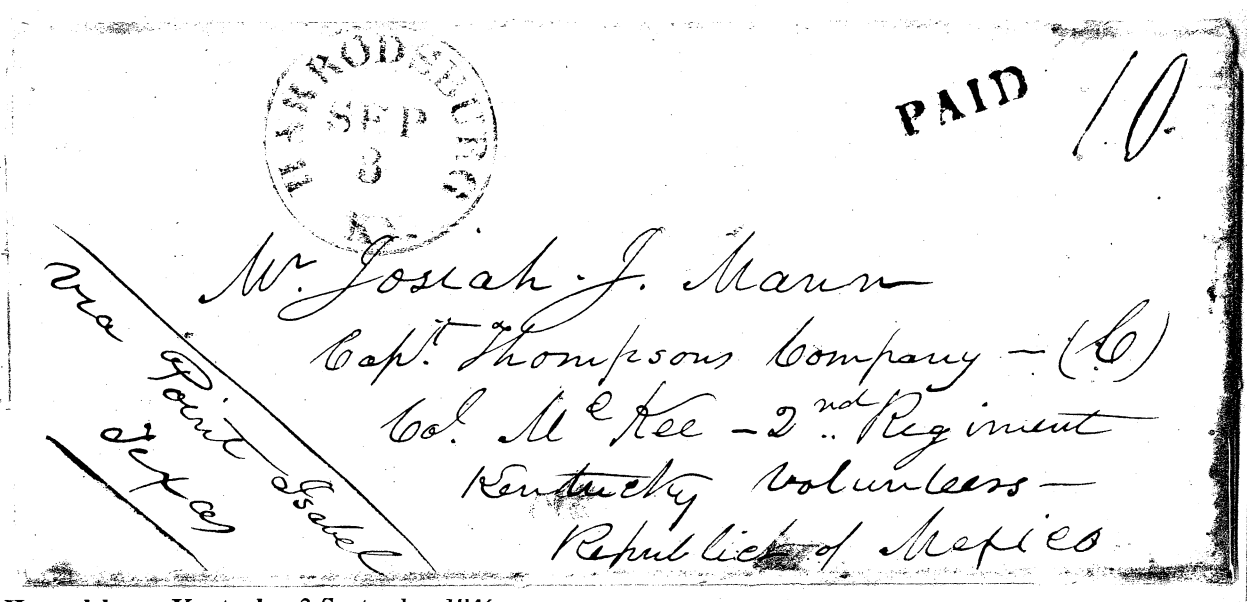 HARRODSBURG
SEP
3
KY.
PAID
10.
Mr. Josiah. J. Mann
Capt. Thompsons Company – (C)
Col. McKee – 2nd.. Regiment
Kentucky volunteers –
Republick of Mexico
via Point Isabel
Texas
3 September